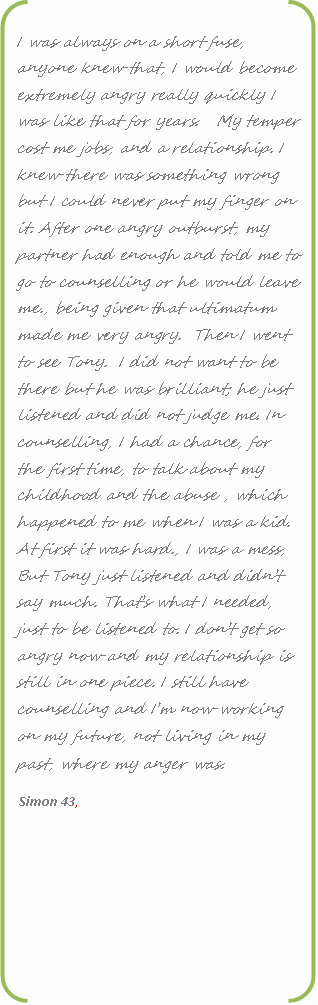 I was always on a short fuse,
anyone knew that, I would become
extremely angry really quickly I
was like that for years.   My temper
cost me jobs, and a relationship. I
knew there was something wrong
but I could never put my finger on
it. After one angry outburst, my
partner had enough and told me to
go to counselling or he would leave
me., being given that ultimatum
made me very angry.  Then I went
to see Tony.  I did not want to be
there but he was brilliant; he just
listened and did not judge me. In
counselling, I had a chance, for
the first time, to talk about my
childhood and the abuse , which
happened to me when I was a kid.
At first it was hard., I was a mess;
But Tony just listened and didn't
say much. That's what I needed,
just to be listened to. I don't get so
angry now and my relationship is
still in one piece. I still have
counselling and I'm now working
on my future, not living in my
past, where my anger was.
Simon 43,